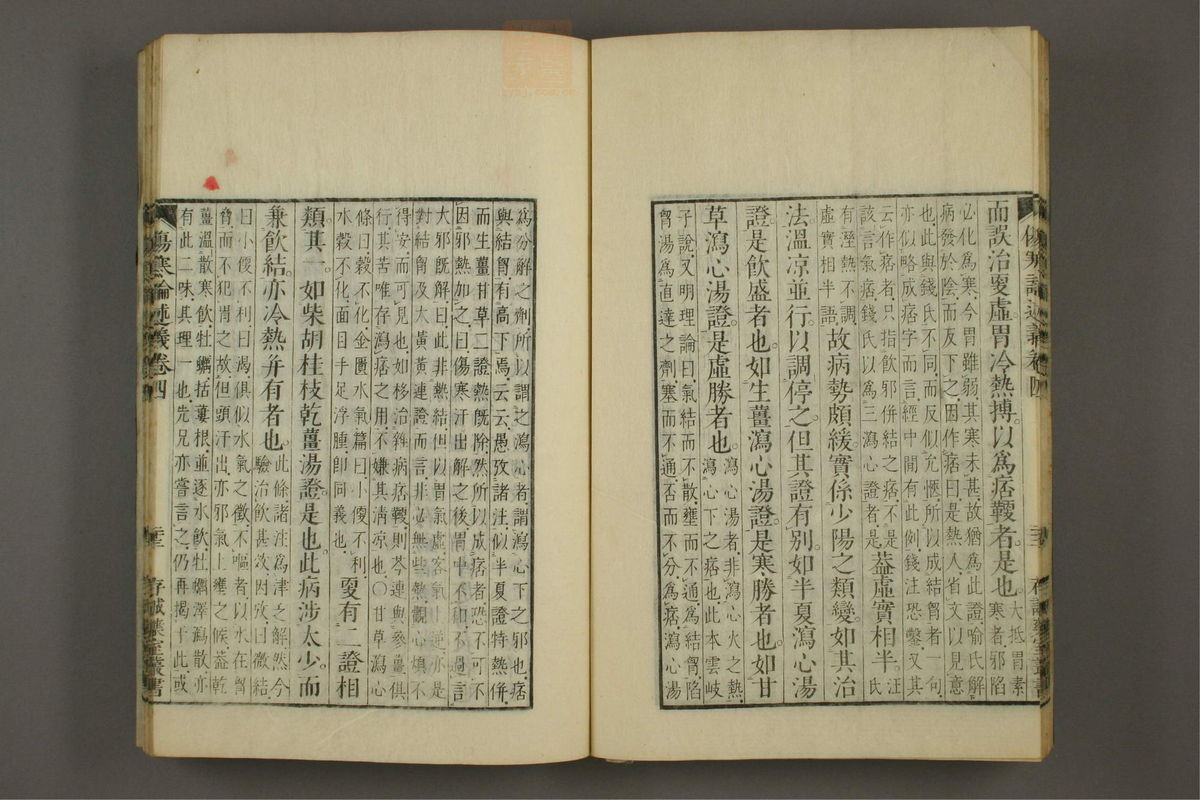 傷寒論述義卷四
而誤治更虛胃冷熱搏以爲痞鞕者是也大抵胃素
寒者邪陷
必化爲寒今胃雖弱其寒未甚故猶爲此證喻氏解
病發於陰而反下之因作痞曰是熱人省文以見意
也此與錢氏不同而反似允愜所以成結胷者一句
亦似略成痞字而言經中閒有此例錢注恐鑿又其
云作痞者只指飲邪併結之痞不是
該言氣痞錢氏以爲三瀉心證者是蓋虛實相半汪氏
有溼熱不調
虛實相半語故病勢頗緩實係少陽之類變如其治
法溫凉並行以調停之但其證有別如半夏瀉心湯
證是飲盛者也如生薑瀉心湯證是寒勝者也如甘
草瀉心湯證是虛勝者也瀉心湯者非瀉心火之熱
瀉心下之痞也此本雲岐
子說又明理論曰氣結而不散壅而不通爲結胷陷
胷湯爲直達之劑塞而不通否而不分爲痞瀉心湯
爲分解之劑所以謂之瀉心者謂瀉心下之邪也痞
與結胷有高下焉云云愚攷諸注似半夏證特熱併
而生薑甘草二證熱旣除然所以成痞者恐不可不
因邪熱加之曰傷寒汗出解之後胃中不和不過言
大邪旣解曰此非熱結但以胃氣虛客氣上逆亦是
對結胷及大黃黃連證而言非必無些熱觀心煩不
得安而可見也如移治雜病痞鞕則芩連與參薑俱
行其苦唯存瀉痞之用不嫌其淸凉也〇甘草瀉心
條曰穀不化金匱水氣篇曰小便不利
水穀不化面目手足浮腫卽同義也更有二證相
類其一如柴胡桂枝乾薑湯證是也此病涉太少而
兼飲結亦冷熱并有者也此條諸注爲津乏解然今
驗治飲甚效因攷曰微結
曰小便不利曰渴俱似水氣之徵不嘔者以水在胷
脅而不犯胃之故但頭汗出亦邪氣上壅之候蓋乾
薑溫散寒飲牡蠣括蔞根並逐水飲牡蠣澤瀉散亦
有此二味其理一也先兄亦嘗言之仍再揭于此或
傷寒論述義卷四
存誠藥室叢書